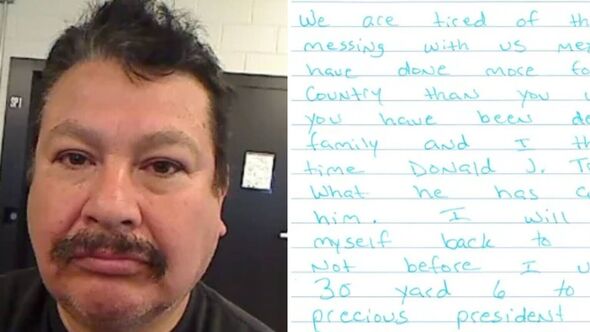 SPI
We are tired of th
messing with us me
have done more fo
Country than you
you have been de
family and I th
time Donald J. T
What he has c
him. I will
myself back to
Not before I u
30 yard 6 to
precious president